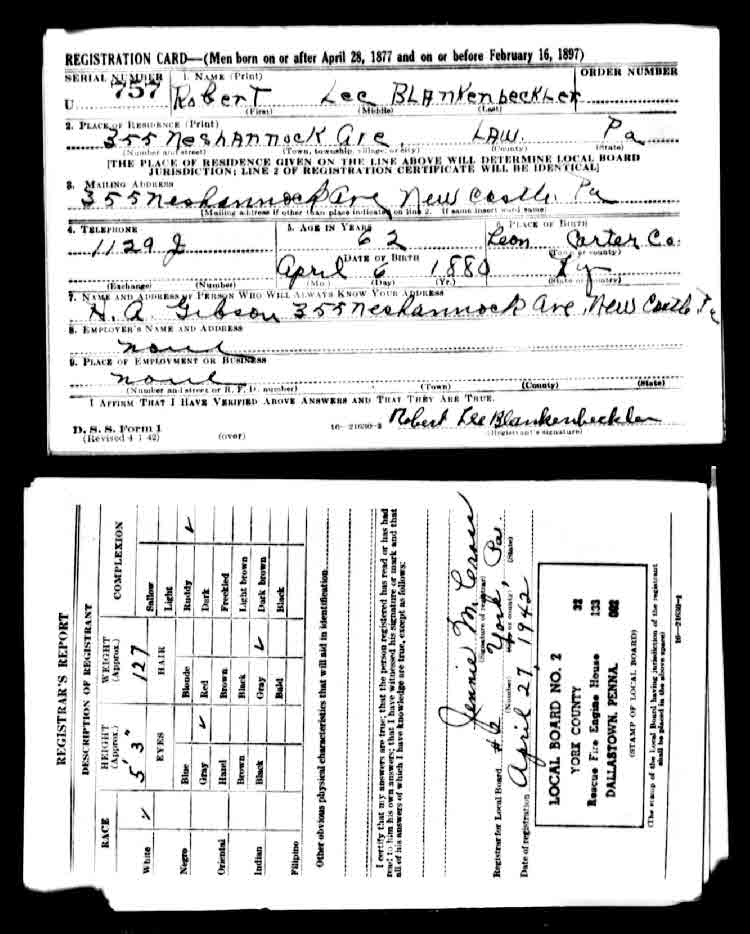 REGISTRATION CARD—(Men born on or after April 28, 1877 and on or before February 16, 1897)
SERIAL NUMBER 1. NAME (Print) ORDER NUMBER
U 757 Robert Lee BLANKenbeckler
(First) (Middle) (Last)
2. PLACE OF RESIDENCE (Print)
355 NeshANNock Ave. LAW. Pa
(Number and street) (Town, township, village, or city) (County) (State)
[THE PLACE OF RESIDENCE GIVEN ON THE LINE ABOVE WILL DETERMINE LOCAL BOARD
JURISDICTION; LINE 2 OF REGISTRATION CERTIFICATE WILL BE IDENTICAL]
3. MAILING ADDRESS
355 Neshannock Ave New Castle. Pa
[Mailing address if other than place indicated on line 2. If same insert word same]
4. TELEPHONE 5. AGE IN YEARS PLACE OF BIRTH
1129 J 62 Leon Carter Co.
DATE OF BIRTH (Town or county)
April 6 1880 Ky
(Exchange) (Number) (Mo.) (Day) (Yr.) (State or country)
7. NAME AND ADDRESS OF PERSON WHO WILL ALWAYS KNOW YOUR ADDRESS
H. A. Gibson 355 Neshannock Ave, New Castle Pa
8. EMPLOYER'S NAME AND ADDRESS
none
9. PLACE OF EMPLOYMENT OR BUSINESS
none
(Number and street or R. F. D. number) (Town) (County) (State)
I AFFIRM THAT I HAVE VERIFIED ABOVE ANSWERS AND THAT THEY ARE TRUE.
Robert Lee Blankenbeckler
D. S. S. Form 1
(Revised 4-1-42) (over) 16—21630-2 (Registrant's signature)
REGISTRAR'S REPORT
DESCRIPTION OF REGISTRANT
RACE HEIGHT (Approx.) WEIGHT (Approx.) COMPLEXION
White ✓ 5' 3" 127 Sallow
EYES HAIR Light
Negro Blue Blonde Ruddy ✓
Gray ✓ Red Dark
Oriental Hazel Brown Freckled
Brown Black Light brown
Indian Black Gray ✓ Dark brown
Bald Black
Filipino
Other obvious physical characteristics that will aid in identification
I certify that my answers are true; that the person registered has read or has had
read to him his own answers; that I have witnessed his signature or mark and that
all of his answers of which I have knowledge are true, except as follows:
Jennie M. Cross
(Signature of registrar)
Registrar for Local Board #2 York, Pa.
(Number) (City or county) (State)
Date of registration April 27, 1942
LOCAL BOARD NO. 2 32
YORK COUNTY 133
Rescue Fire Engine House 002
DALLASTOWN, PENNA.
(STAMP OF LOCAL BOARD)
(The stamp of the Local Board having jurisdiction of the registrant
shall be placed in the above space)
16—21630-1